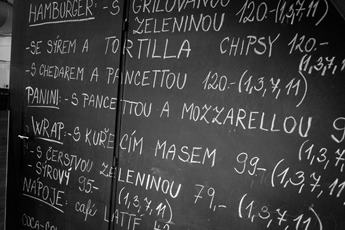 HAMBURGER: - S GRILOVANOU
ZELENINOU 120.-(1,3,7,11)
-SE SÝREM A TORTILLA CHIPSY 120.-
(1,3,7,11)
-S CHEDAREM A PANCETTOU 120-(1,3,7,11)
PANINI: -S PANCETTOU A MOZZARELLOU 99
(1,3,7,11)
WRAP: -S KUŘECÍM MASEM 99-(1,3,7,11)
-S ČERSTVOU ZELENINOU 79,-(1,3,7,11)
-SÝROVÝ 95- (1,3,7,11)
NÁPOJE: café LATTE
COCA-COLA